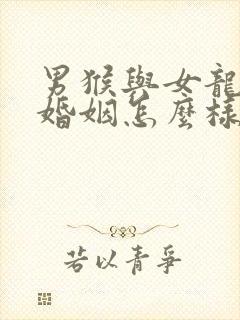 男猴與女龍
婚姻怎麼樣
若以青爭